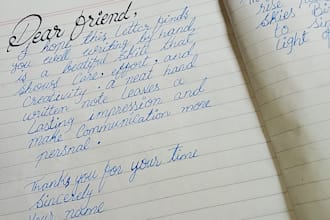 Dear friend,
I hope this letter finds
you well writing by hand
is a beautiful skill that
shows care, effort, and
creativity. a neat hand
written note leaves a
lasting impression and
make communication more
persnal.
Thanks you for your time
Sincerely
Your name
rise
skies
to
light of